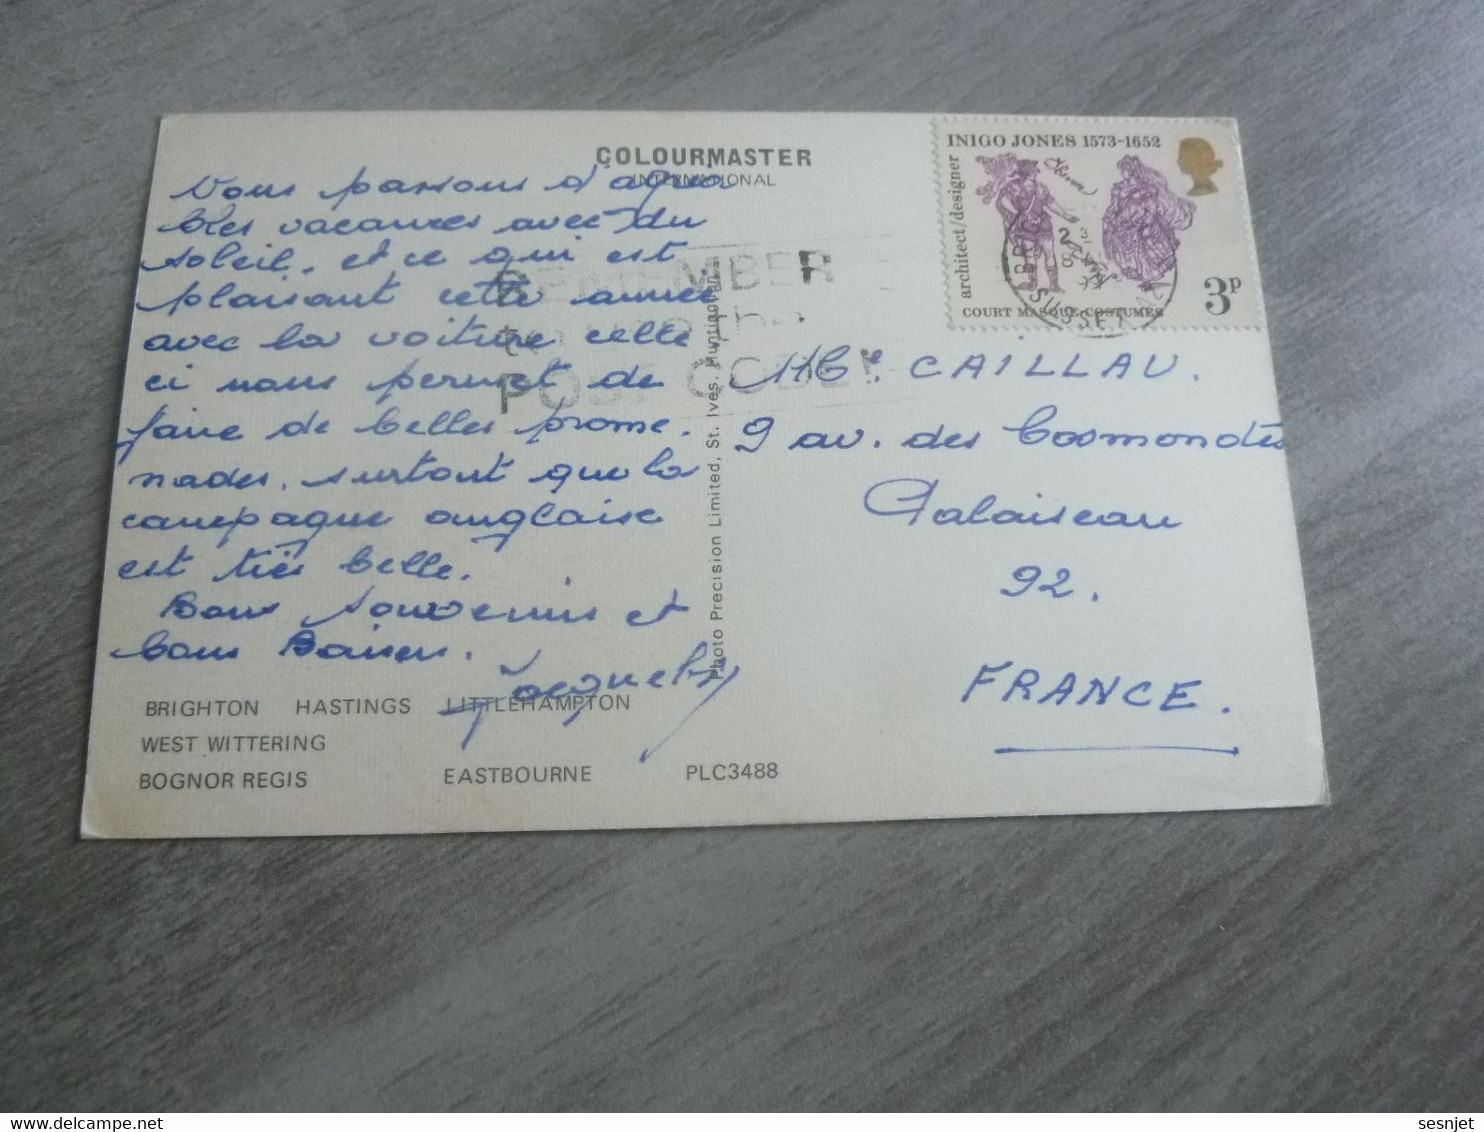 COLOURMASTER
INTERNATIONAL
Nous passons d'agréa
bles vacances avec du
soleil, et ce qui est
plaisant cette année
avec la voiture celle
ci nous permet de
faire de belles prome.
nades. surtout que la
campagne anglaise
est très belle.
Bons souvenirs et
bons Baisers.
BRIGHTON HASTINGS LITTLEHAMPTON
WEST WITTERING
BOGNOR REGIS EASTBOURNE PLC3488
Photo Precision Limited, St. Ives, Huntingdon
REMEMBER
POST CODE
INIGO JONES 1573-1652
architect/designer
3P
COURT MASQUE COSTUMES
CAILLAU.
9 av. des Cosmonautes
Palaiseau
92.
FRANCE.
sesnjet